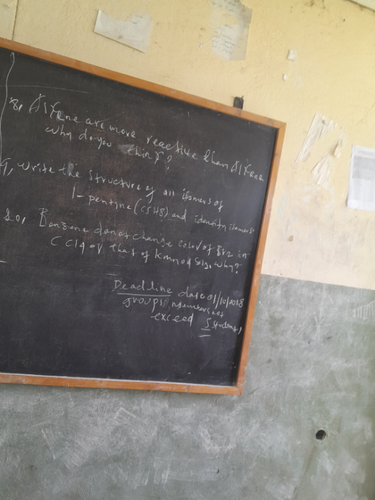 8, Alkene are more reactive than Alkane
why do you think?
9, write the structure of all isomers of
1-pentyne (C5H8) and identify isomers
10, Benzene does not change color of Br2 in
CCl4 or that of KMnO4 soln, why?
Deadline date 01/10/2018
group members not
exceed 5 students